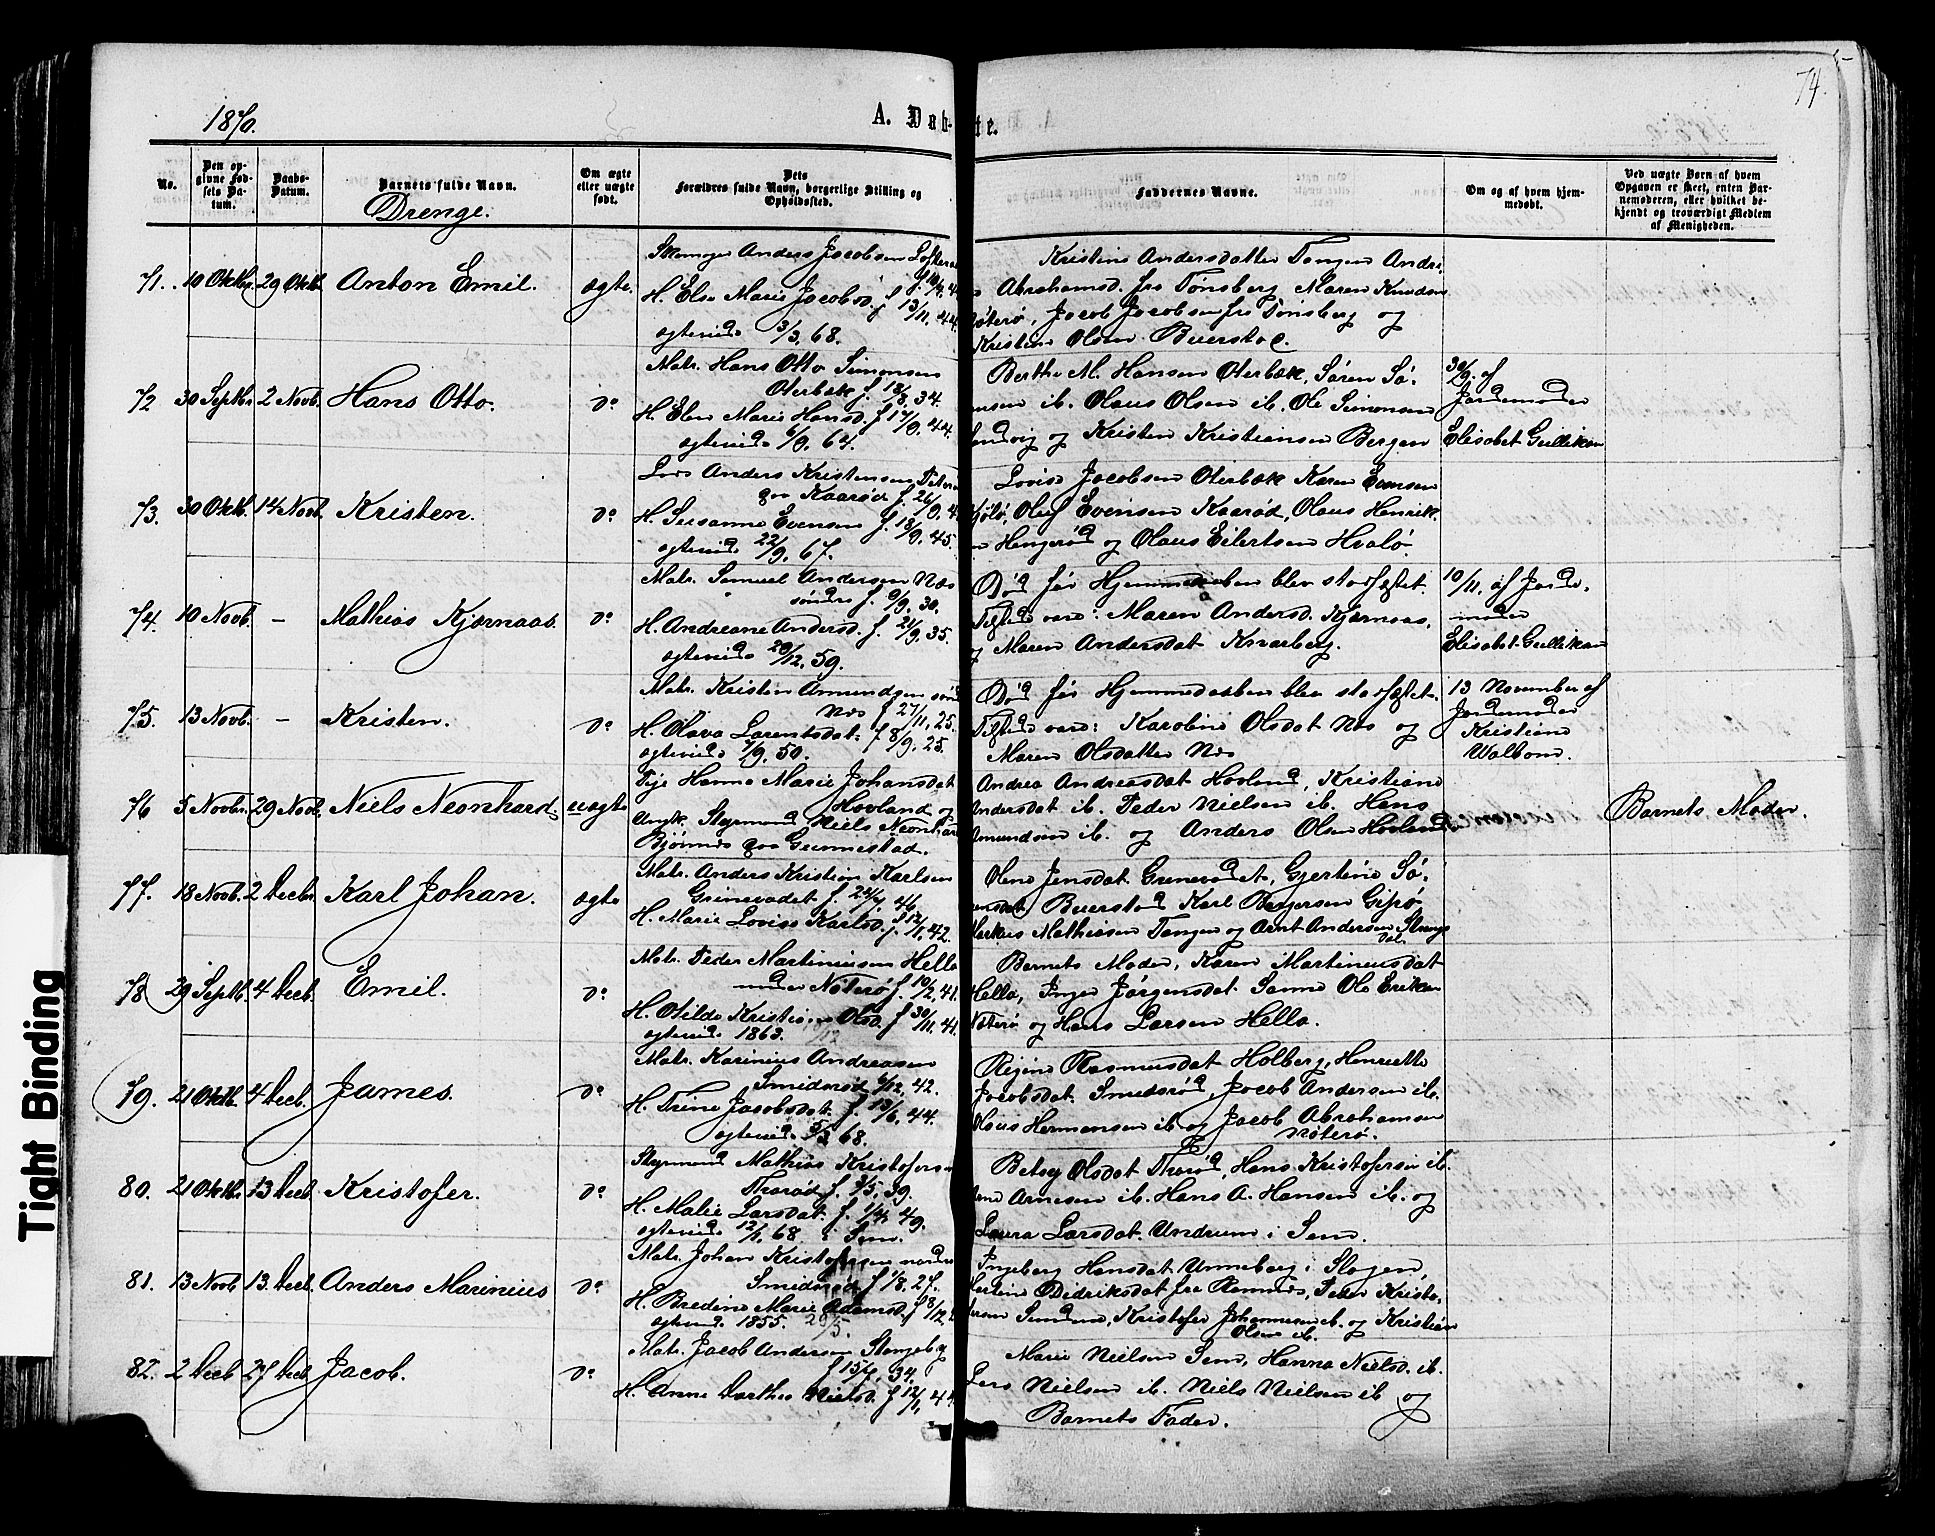 74.
1870.
A. Døbte.
No.
Den opgivne Fødsels Datum.
Daabs-Datum.
Barnets fulde Navn.
Drenge.
Om ægte eller uægte født.
Dets Forældres fulde Navn, borgerlige Stilling og Opholdssted.
Faddernes Navne.
Om og af hvem hjemmedøbt.
Ved uægte Børn af hvem Opgaven er skeet, enten Barnemoderen, eller hvilket bekjendt og troværdigt Medlem af Menigheden.
71. 10 Oktbr. 29 Oktb. Anton Emil. ægte.
Anders Jacobsen
H. Else Marie Jacobsd. f 13/11. 44
ægteviede 3/3. 68.
Kristine Andersdatter Tangen
Abrahamsd. fra Tønsberg Maren Knudsen
Nøterø, Jacob Jacobsen fra Tønsberg og
Kristian Olsen Buerstad.
72 30 Septbr. 2 Novb. Hans Otto. do
Matr. Hans Otto Simonsen
Oterbæk f. 18/8. 34.
H. Elen Marie Hansd. f 17/9. 44.
ægteviede 6/9. 64.
Berthe M. Hansen Oterbæk, Søren Sø-
rensen ib. Olaus Olsen ib. Ole Simonsen
og Kristen Kristiansen Bergan
30/9. af
Jordemoder
Elisabet Gulliksen
73. 30 Oktb. 14 Novb. Kristen. do
Lods Anders Kristensen
Kaarød f. 26/9.
H. Susanne Evensen f. 18/9. 45.
ægteviede 22/9. 67.
Lovise Jacobsen Oterbæk Karen Evensen
Oluf Evensen Kaarød, Olaus Henrik-
Hengerød og Olaus Eilertsen Hvalø.
74. 10 Novb. - Mathias Kjærnaas. do
Matr. Samuel Andersen Næs
søndre f. 9/9. 30.
H. Andreane Andersd. f. 24/9. 35.
ægteviede 29/12. 59.
Død før Hjemmedaaben blev stadfæstet.
Tilstede vare: Maren Andersd. Kjærnaas,
og Maren Andersdat Knarberg.
10/11. af Jorde-
moder
Elisabet Gulliksen
75. 13 Novb. - Kristen. do
Matr. Kristen Amundsen
Næs f 27/11. 25.
H. Olava Larentsdat. f 8/9. 25.
ægteviede 7/9. 50.
Død før Hjemmedaaben blev stadfæstet.
Tilstede vare: Karoline Olsdat Næs og
Maren Olsdatter Næs
13 November af
Jordemoder
Kristiane
Walbom.
76 5 Novbr. 29 Novb. Niels Neonhard. uægte
Pige Hanna Marie Johansdat
Hovland og
Ungk. Styrmand Niels Neonhard
Bjønnes paa Gunnestad.
Andrea Andreasdat Hovland, Kristiane
Andersdat ib. Peder Nielsen ib. Hans
Amundsen ib. og Anders Olsen Hovland
Barnets Moder.
77. 18 Novb. 2 Decbr. Karl Johan. ægte
Matr. Anders Kristian Karlsen
Grimevadet f. 24/7. 46.
H. Marie Lovise Karlsd. f. 12/1. 42.
Olene Jensdat Grimevadet, Gjertine Sø-
rensdat Buerstad Karl Børgersen Gipø
Markus Mathiasen Tangen og Arnt Andersen
78 29 Septb. 4 Decb. Emil. do
Matr. Peder Martiniusen Hella
under Nøterø f. 10/2. 41.
H. Otilde Kristine Olsd. f 30/11. 41.
ægteviede 1863.
Barnets Moder, Karen Martiniusdat
Hella, Inger Jørgensdat Sanne Ole Eriksen
Nøterø og Hans Larsen Hella.
79. 21 Oktb. 4 Decb. James. do
Matr. Karinius Andreasen
Smidsrød 6/12. 42.
H. Trine Jacobsdat f. 13/6. 44.
ægteviede 68.
Regine Rasmusdat Holberg, Henriette
Jacobsdat Smidsrød, Jacob Andersen ib.
Olaus Hermansen ib og Jacob Abrahamsen
Nøterø.
80. 21 Oktb. 13 Decb. Kristofer. do
Styrmand Mathias Kristofersen
Thorød f. 3/5. 39.
H. Malie Larsdat f. 1/4. 49.
ægteviede 12/1. 68 i Sem.
Betsy Olsdat Thorød, Hans Kristofersen ib.
Arnesen ib. Hans A. Hansen ib. og
Laura Larsdat Undrum i Sem.
81. 13 Novb. 13 Decb. Anders Marinius do
Matr. Johan Kristofersen nordre
Smidsrød f 1/8. 27.
H. Bredine Marie Adamsd. f 8/12.
ægteviede 1855. 29/5.
Ingeborg Hansdat Unneberg i Slagen,
Didriksdat fra Ramnæs, Peder Kristo-
fersen Kristofer Johannesen ib. og Kristian
Olsen ib.
82. 2 Decb 27 Decb. Jacob. do
Matr. Jacob Andersen
f 15/7. 34.
H. Anne Dorthea Nielsd. f 12/1. 44
Marie Nielsen Sem, Hanna Nielsd. ib.
Lars Nielsen ib. Niels Nielsen ib og
Barnets Fader.
Tight Binding